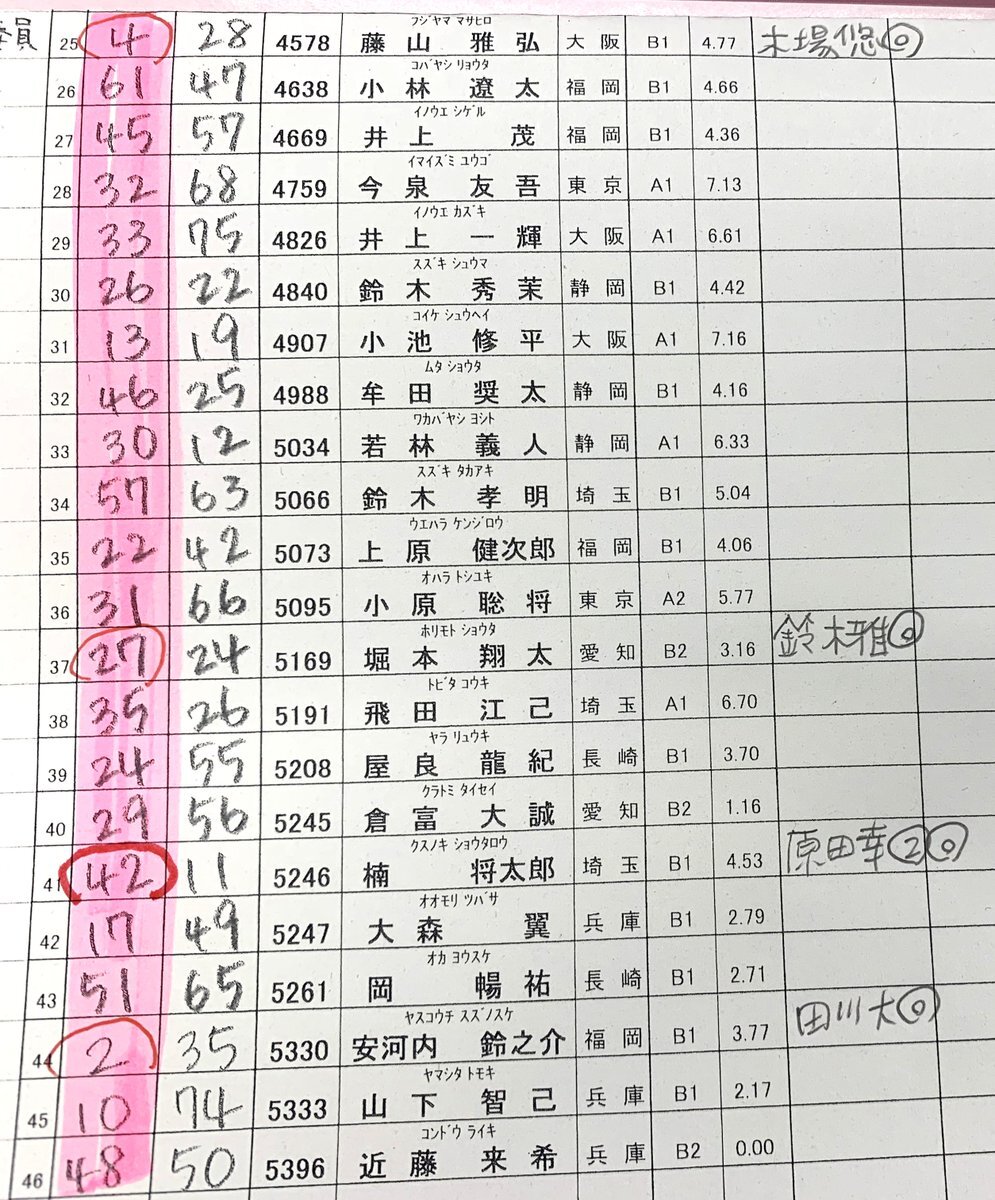 委員 25 4 28 4578 フジヤマ マサヒロ 藤山 雅弘 大阪 B1 4.77 木場悠◎
26 61 47 4638 コバヤシ リョウタ 小林 遼太 福岡 B1 4.66
27 45 57 4669 イノウエ シゲル 井上 茂 福岡 B1 4.36
28 32 68 4759 イマイズミ ユウゴ 今泉 友吾 東京 A1 7.13
29 33 75 4826 イノウエ カズキ 井上 一輝 大阪 A1 6.61
30 26 22 4840 スズキ シュウマ 鈴木 秀茉 静岡 B1 4.42
31 13 19 4907 コイケ シュウヘイ 小池 修平 大阪 A1 7.16
32 46 25 4988 ムタ ショウタ 牟田 奨太 静岡 B1 4.16
33 30 12 5034 ワカバヤシ ヨシト 若林 義人 静岡 A1 6.33
34 57 63 5066 スズキ タカアキ 鈴木 孝明 埼玉 B1 5.04
35 22 42 5073 ウエハラ ケンジロウ 上原 健次郎 福岡 B1 4.06
36 31 66 5095 オハラ トシユキ 小原 聡将 東京 A2 5.77
37 27 24 5169 ホリモト ショウタ 堀本 翔太 愛知 B2 3.16 鈴木雅◎
38 35 26 5191 トビタ コウキ 飛田 江己 埼玉 A1 6.70
39 24 55 5208 ヤラ リュウキ 屋良 龍紀 長崎 B1 3.70
40 29 56 5245 クラトミ タイセイ 倉富 大誠 愛知 B2 1.16
41 42 11 5246 クスノキ ショウタロウ 楠 将太郎 埼玉 B1 4.53 原田幸②◎
42 17 49 5247 オオモリ ツバサ 大森 翼 兵庫 B1 2.79
43 51 65 5261 オカ ヨウスケ 岡 暢祐 長崎 B1 2.71
44 2 35 5330 ヤスコウチ スズノスケ 安河内 鈴之介 福岡 B1 3.77 田川大◎
45 10 74 5333 ヤマシタ トモキ 山下 智己 兵庫 B1 2.17
46 48 50 5396 コンドウ ライキ 近藤 来希 兵庫 B2 0.00